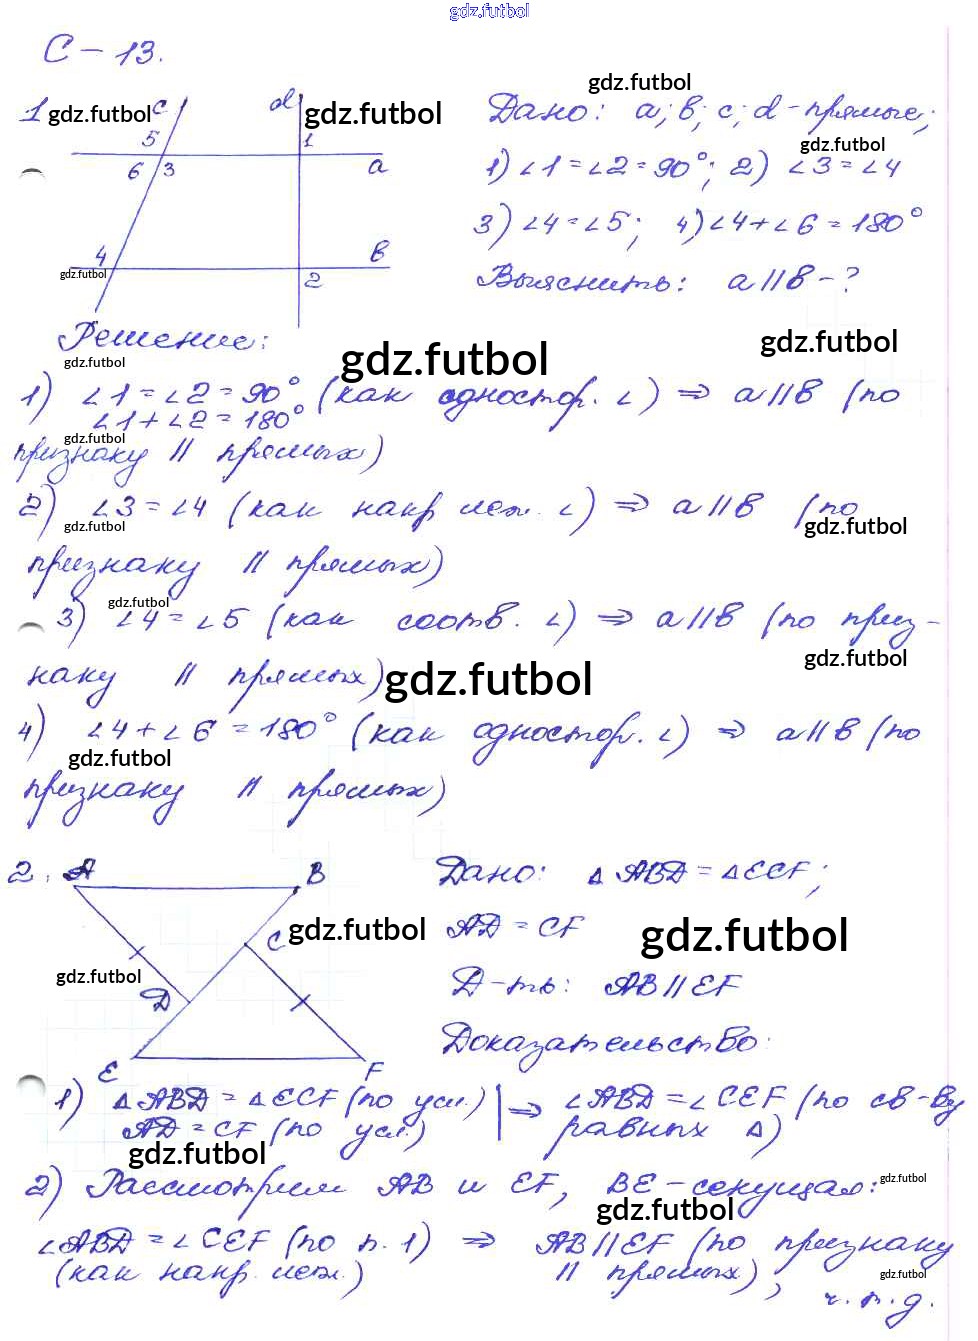 gdz.futbol
С – 13.
1 gdz.futbol c d gdz.futbol
5 1
6 3 a
4 b
gdz.futbol 2
gdz.futbol
Дано: a; b; c; d - прямые;
gdz.futbol
1) ∠1 = ∠2 = 90°; 2) ∠3 = ∠4
3) ∠4 = ∠5; 4) ∠4 + ∠6 = 180°
Выяснить: a || b - ?
Решение:
gdz.futbol gdz.futbol gdz.futbol
1) ∠1 = ∠2 = 90° (как одностор. ∠) ⇒ a || b (по
∠1 + ∠2 = 180°
gdz.futbol
признаку || прямых)
2) ∠3 = ∠4 (как накр леж. ∠) ⇒ a || b (по
gdz.futbol gdz.futbol
признаку || прямых)
gdz.futbol
3) ∠4 = ∠5 (как соотв. ∠) ⇒ a || b (по приз-
gdz.futbol
наку || прямых) gdz.futbol
4) ∠4 + ∠6 = 180° (как одностор. ∠) ⇒ a || b (по
gdz.futbol
признаку || прямых)
2. A B
C gdz.futbol
gdz.futbol
D
E F
Дано: △ ABD = △ ECF;
AD = CF gdz.futbol
Д-ть: AB || EF
Доказательство:
1) △ ABD = △ ECF (по усл.) | ⇒ ∠ABD = ∠CEF (по св-ву
AD = CF (по усл.) равных △)
gdz.futbol
2) Рассмотрим AB и EF, BE - секущая:
gdz.futbol gdz.futbol
∠ABD = ∠CEF (по п. 1) ⇒ AB || EF (по признаку
(как накр. леж.) || прямых),
gdz.futbol
ч.т.д.